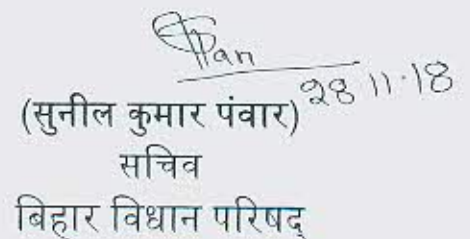 28.11.18
(सुनील कुमार पंवार)
सचिव
बिहार विधान परिषद्